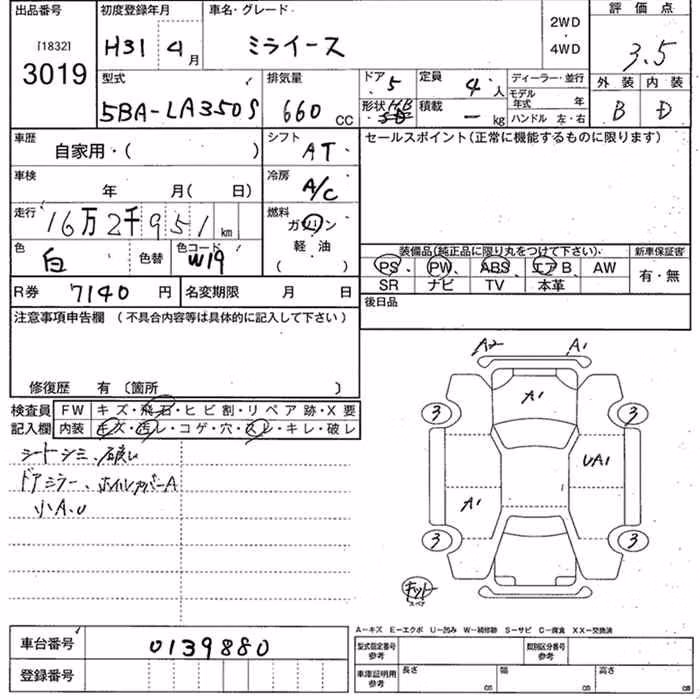 出品番号 初度登録年月 車名・グレード 2WD 評価点
[1832] H31 4月 ミライース ・ 3.5
3019 4WD
型式 排気量 ドア 5 定員 4人 ディーラー・並行 外装 内装
5BA-LA350S 660 CC 形状 HB 積載 ー kg モデル年式 年 B D
ハンドル 左・右
車歴 シフト セールスポイント(正常に機能するものに限ります)
自家用・( ) AT
車検 冷房
年 月( 日) A/C
走行 燃料
16万2千951km ガソリン
色 白 色替 色コード W19 軽油
( ) 装備品(純正品に限り丸をつけて下さい). 新車保証書
PS、 PW、 ABS エアB AW 有・無
R券 7140円 名変期限 月 日 SR ナビ TV 本革
注意事項申告欄 (不具合内容等は具体的に記入して下さい) 後日品
A2 A1
A1
修復歴 有 (箇所 )
検査員 FW キズ・飛石・ヒビ割・リペア跡・X要 3 3
記入欄 内装 キズ・汚レ・コゲ・穴・スレ・キレ・破レ
シートシミ、破レ UA1
ドアミラー、ホイルカバーA A1
小A、U
3 3
キット
スペア
A−キズ E−エクボ U−凹み W−補修跡 S−サビ C−腐食 XX−交換済
車台番号 0139880 型式指定番号 参考 類別区分番号 参考
登録番号 車庫証明用 参考 長さ cm 幅 cm 高さ cm